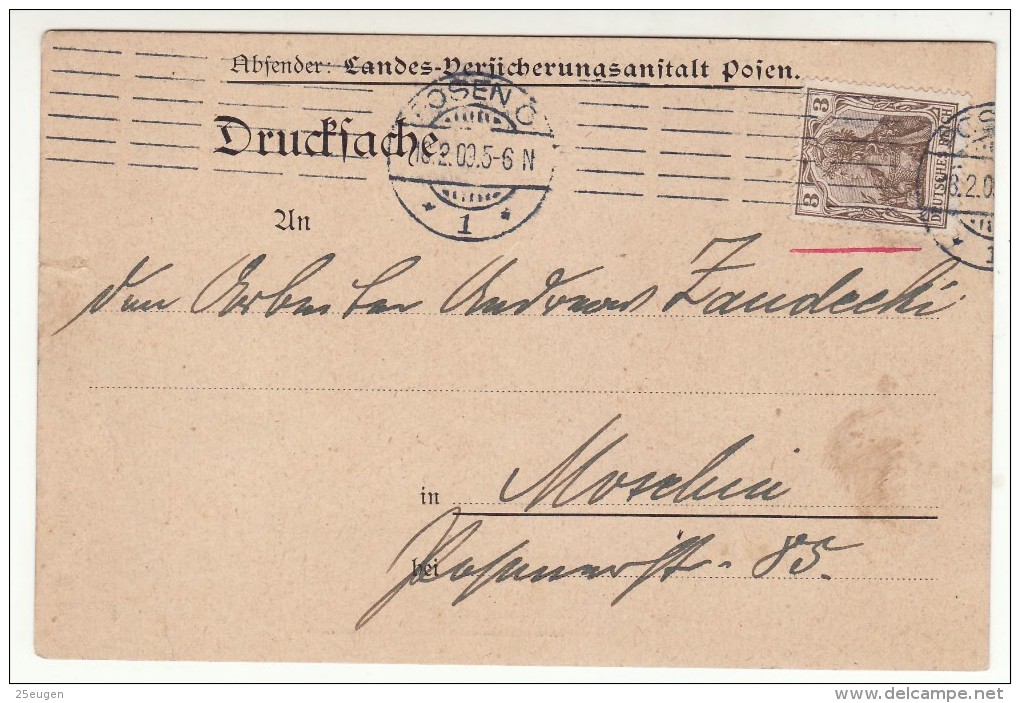 Absender: Landes-Versicherungsanstalt Posen.
Drucksache
POSEN O
18.2.09.5-6 N
* 1 *
3
3
DEUTSCHES REICH
An
den Arbeiter Andreas Zandecki
in Moschin
bei Posenerstr. 85.
25eugen
www.delcampe.net